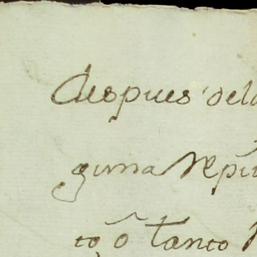 despues dela
guna Repu
to, o tanto